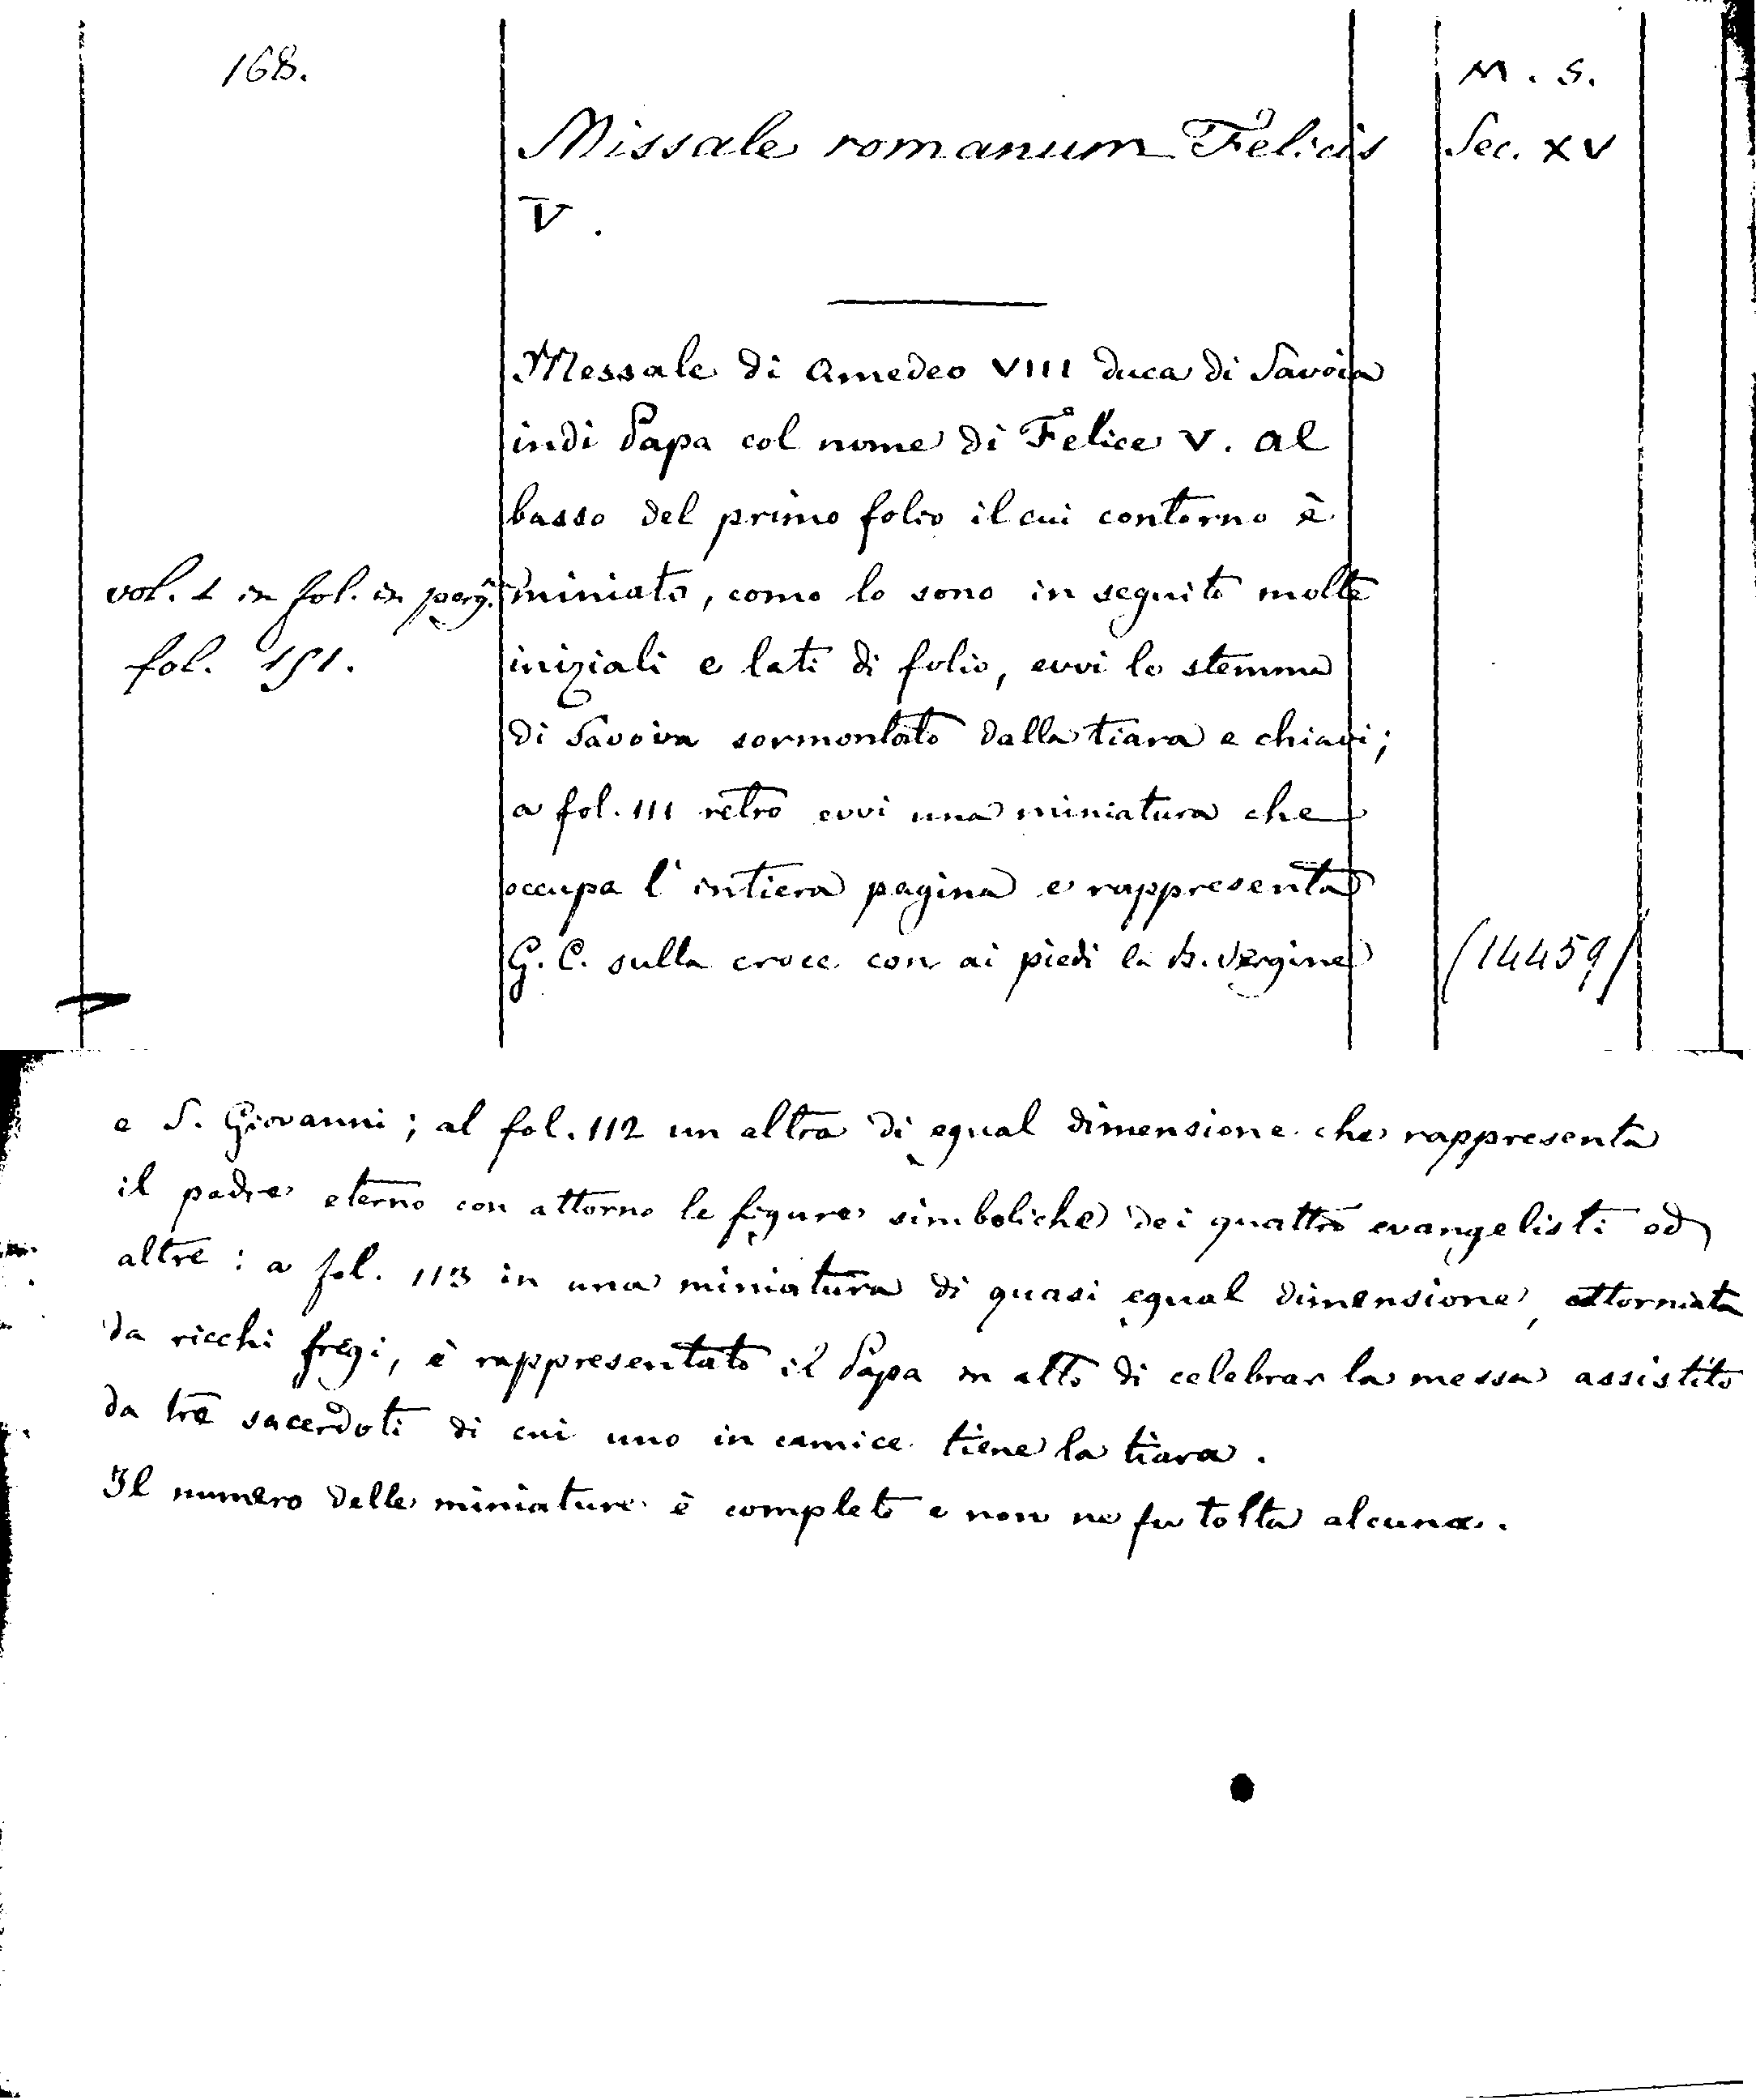 168.
M. S.
Missale romanum Felicis
Sec. XV
V.
Messale di Amedeo VIII duca di Savoia
indi Papa col nome di Felice V. Al
basso del primo folio il cui contorno è
vol. 1 in fol. in perg.
miniato, come lo sono in seguito molte
fol. 191.
iniziali e lati di folio, evvi lo stemma
di Savoia sormontato dalla tiara e chiavi;
a fol. 111 retro evvi una miniatura che
occupa l'intiera pagina e rappresenta
G. C. sulla croce con ai piedi la B. Vergine
(14459)
e S. Giovanni; al fol. 112 un altra di egual dimensione che rappresenta
il padre eterno con attorno le figure simboliche dei quattro evangelisti ed
altre: a fol. 113 in una miniatura di quasi egual dimensione, attorniata
da ricchi fregi, è rappresentato il Papa in atto di celebrar la messa assistito
da tre sacerdoti di cui uno in camice tiene la tiara.
Il numero delle miniature è completo e non ne fu tolta alcuna.